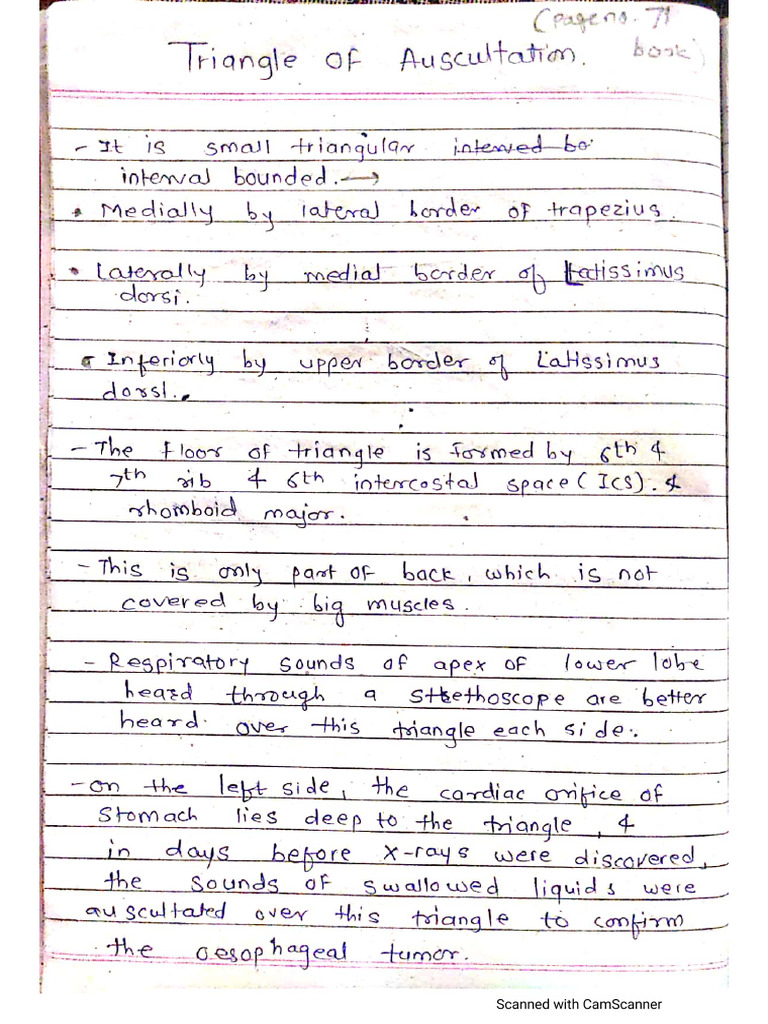 (page no. 71
book)
Triangle of Auscultation.
- It is small triangular
interval bounded. →
• Medially by lateral border of trapezius.
• Laterally by medial border of Latissimus
dorsi.
• Inferiorly by upper border of Latissimus
dorsi.
- The floor of triangle is formed by 6th &
7th rib & 6th intercostal space (ICS). &
rhomboid major.
- This is only part of back, which is not
covered by big muscles.
- Respiratory sounds of apex of lower lobe
heard through a stethoscope are better
heard over this triangle each side.
- on the left side, the cardiac orifice of
stomach lies deep to the triangle, &
in days before X-rays were discovered,
the sounds of swallowed liquids were
auscultated over this triangle to confirm
the oesophageal tumor.
Scanned with CamScanner